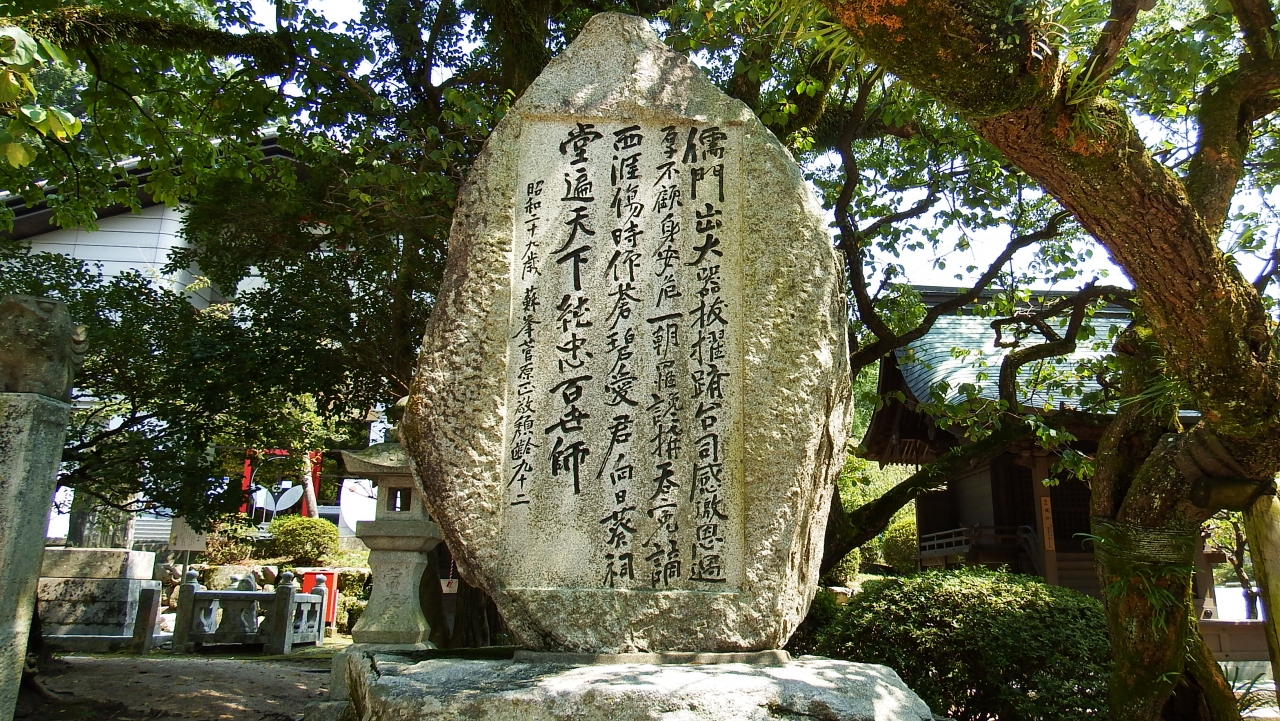 儒門出大器抜擢躋台司感激恩遇
厚不顧身安危一朝罹讒搆呑冤謫
西涯傷時仰蒼碧愛君向日葵祠
堂遍天下純忠百世師
昭和二十九歳 蘇峯菅原正敬頽齢九十二